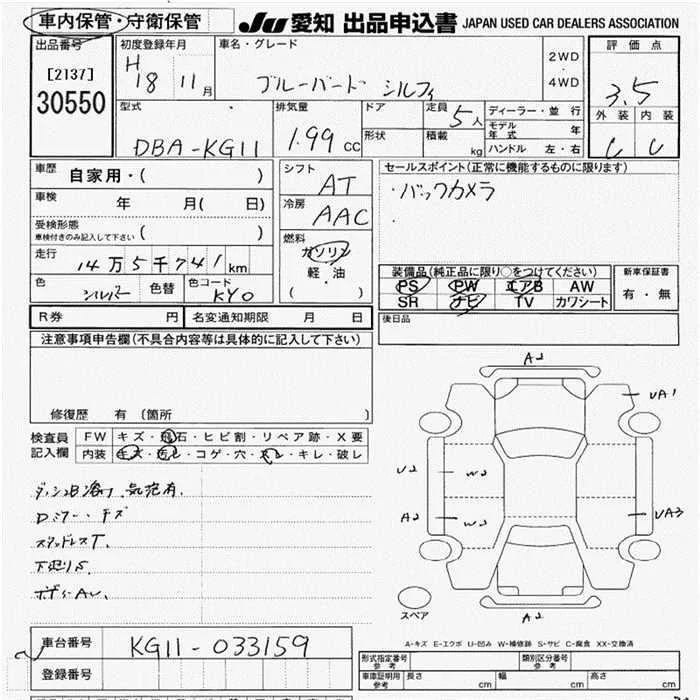 車内保管・守衛保管
JU 愛知 出品申込書 JAPAN USED CAR DEALERS ASSOCIATION
出品番号
[2137]
30550
初度登録年月
H 18 11月
車名・グレード
ブルーバード シルフィ
2WD
・
4WD
評価点
3.5
外装 内装
C C
型式
DBA-KG11
排気量
1.99 cc
ドア
形状
定員 5人
積載 kg
ディーラー・並行
モデル年式 年
ハンドル 左・右
車歴 自家用・( )
車検 年 月( 日)
受検形態
車検付きのみ記入して下さい ( )
走行
14万5千741km
色 シルバー 色替 色コード KY0
シフト
AT
冷房
AAC
燃料
ガソリン
軽・油
( )
セールスポイント(正常に機能するものに限ります)
・バックカメラ
・
装備品(純正品に限り○をつけてください)
PS PW エアB AW
SR ナビ TV カワシート
新車保証書
有・無
R券 円 名変通知期限 月 日
後日品
注意事項申告欄(不具合内容等は具体的に記入して下さい)
修復歴 有 〔箇所 〕
検査員記入欄
FW キズ・飛石・ヒビ割・リペア跡・X要
内装 キズ・汚レ・コゲ・穴・スレ・キレ・破レ
Dミラー キズ
スタッドレスT.
下廻りS
ボディAU.
A2
UA1
U2 W2
A2 W2
UA3
A2
スペア
A-キズ E-エクボ U-凹み W-補修跡 S-サビ C-腐食 XX-交換済
車台番号 KG11-033159
登録番号
形式指定番号 参考
類別区分番号 参考
車庫証明用 参考 長さ cm 幅 cm 高さ cm